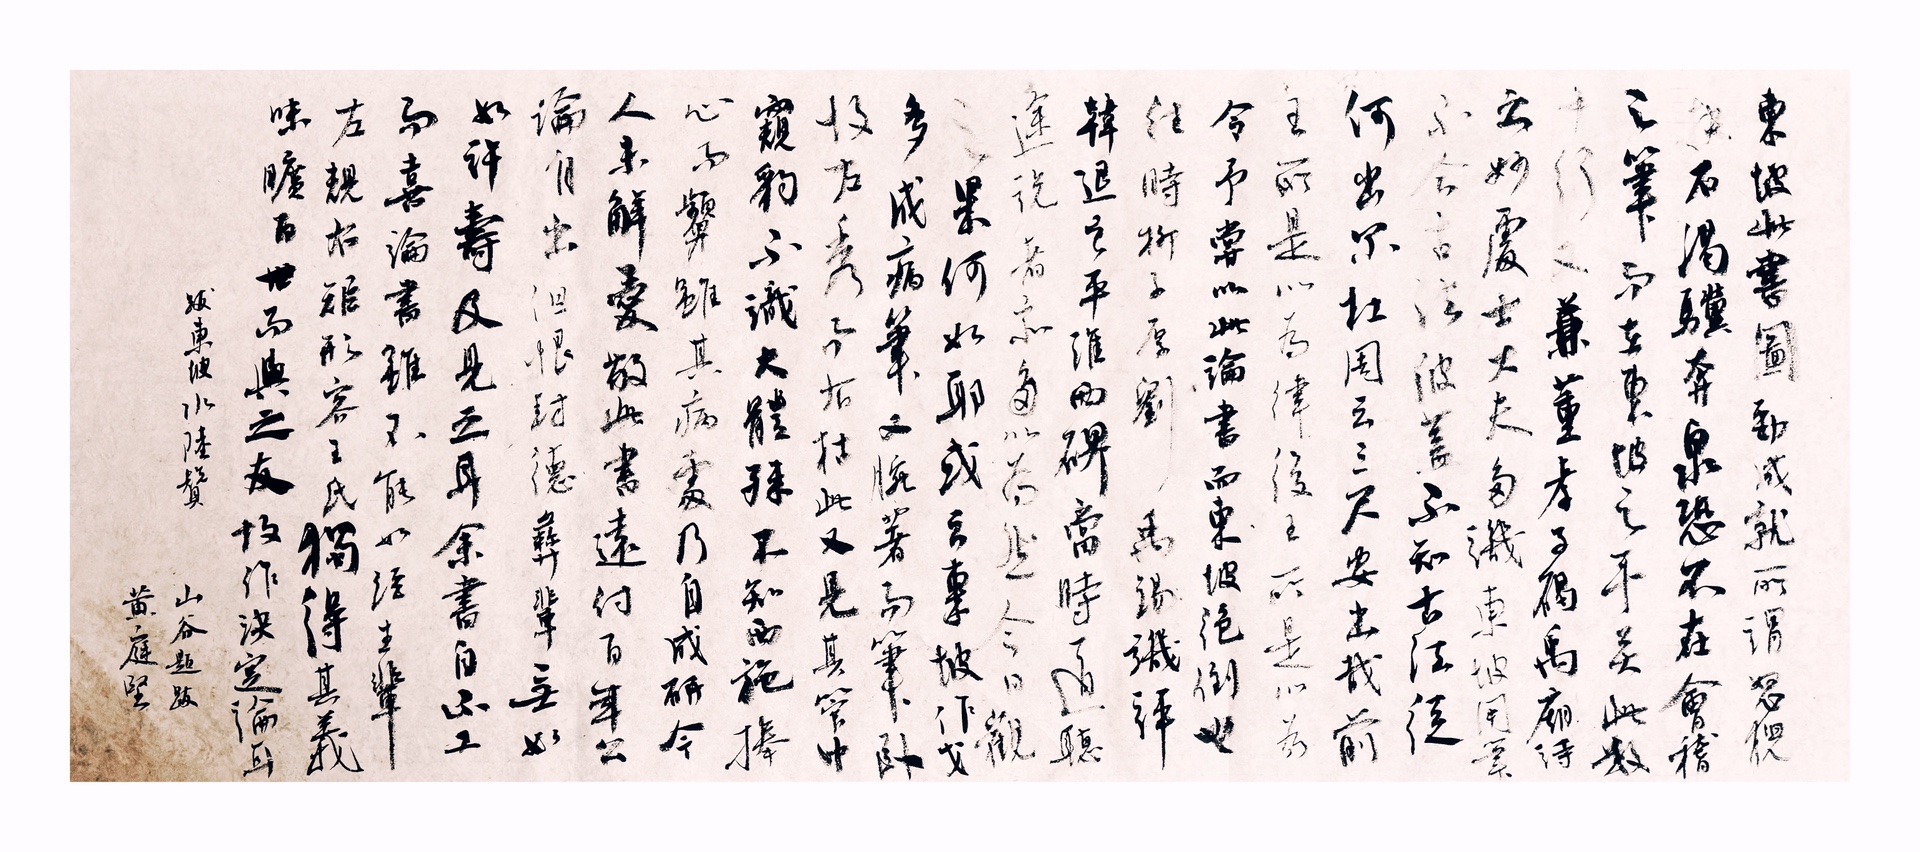 東坡此書圓勁成就所謂怒猊
抉石渴驥奔泉恐不在會稽
之筆而在東坡之手矣此數
十行又兼董孝子碣禹廟詩
之妙處士大夫多譏東坡用筆
不合古法彼蓋不知古法從
何出爾杜周云三尺安出哉前
王所是以為律後王所是以為
令予嘗以此論書而東坡絕倒也
往時柳子厚劉禹錫譏評
韓退之平淮西碑當時道聽
途說者亦多以為然今日觀
之果何如耶或云東坡作戈
多成病筆又腕著而筆臥
故左秀而右枯此又見其管中
窺豹不識大體殊不知西施捧
心而顰雖其病處乃自成妍今
人未解愛敬此書遠付百年公
論自出但恨封德彝輩無如
如許壽及見之耳余書自不工
而喜論書雖不能如經生輩
左規右矩形容王氏獨得其義
味曠百世而與之友故作決定論耳
跋東坡水陸贊
山谷題跋
黃庭堅